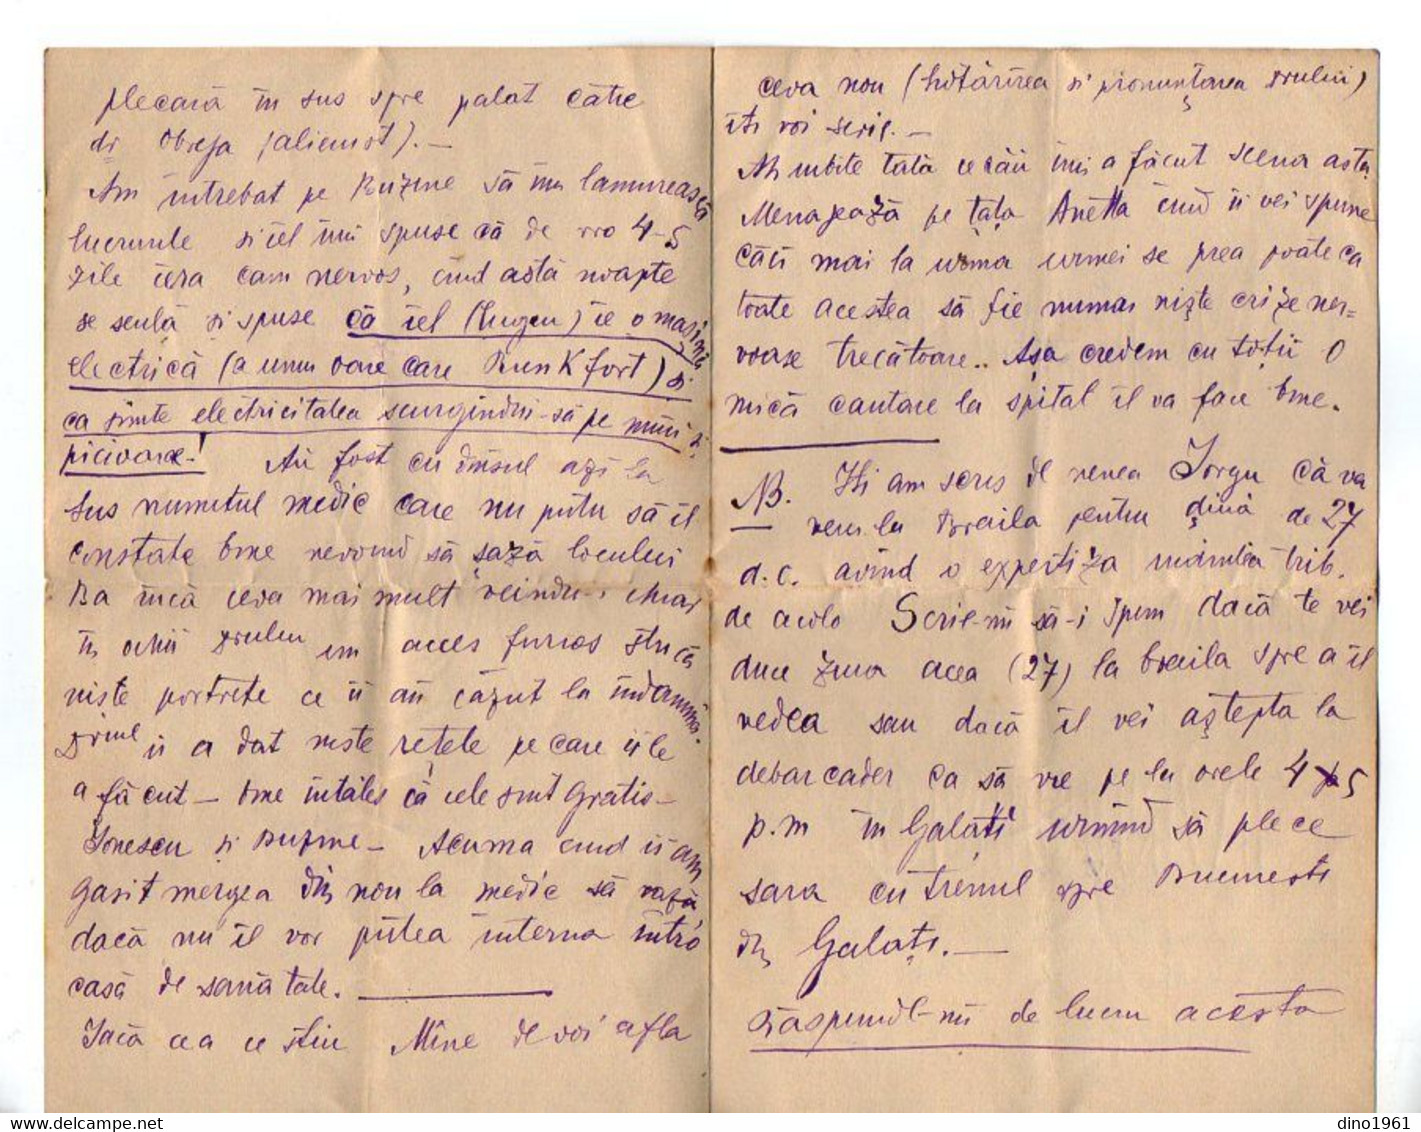 plecară în sus spre palat către
dr Obreja (alienist). —
Am întrebat pe Buzne să mă lămurească
lucrurile și iel îmi spuse că de vro 4-5
zile iera cam nervos, cînd astă noapte
se sculă și spuse că iel (Eugen) ie o mașină
electrică (a unui oare care Runkfort) și
ca simte electricitatea scurgîndu-să pe mîni și
picioare! Au fost cu dînsul azi la
sus numitul medic care nu putu să îl
constate bine nevoind să șază locului
Ba încă ceva mai mult chiar
în ochii drului un acces furios strică
niște portrete ce îi au căzut la îndămînă.
drul ii a dat niste rețete pe care ii le
a făcut — bine înțăles că iele sînt gratis —
Ionescu și Buzne — Acuma cînd ii am
gasit mergea din nou la medic să vază
dacă nu îl vor pute interna într'o
casă de sanătate. —
Iacă cea ce știu Mîne de voi afla
ceva nou (hotărîrea și pronunțarea drului)
îți voi scrie. —
Ah iubite tată ce rău îmi a făcut scena asta
Menajează pe țața Anetta cînd ii vei spune
căci mai la urma urmei se prea poate ca
toate acestea să fie numai niște crize ner=
voase trecătoare.. Așa credem cu toții O
mică cautare la spital îl va face bine.
NB. Iți am scris de nenea Iorgu că va
veni la Braila pentru ziuă de 27
d.c. avînd o expertiza naintea trib.
de acolo Scrie-mi să-i spun dacă te vei
duce ziua acea (27) la braila spre a îl
vedea sau dacă îl vei aștepta la
debarcader ca să vie pe la orele 4 5
p.m în Galați urmînd să plece
sara cu trenul spre Bucuresti
din Galați. —
Răspunde-mi de lucru acesta
dino1961